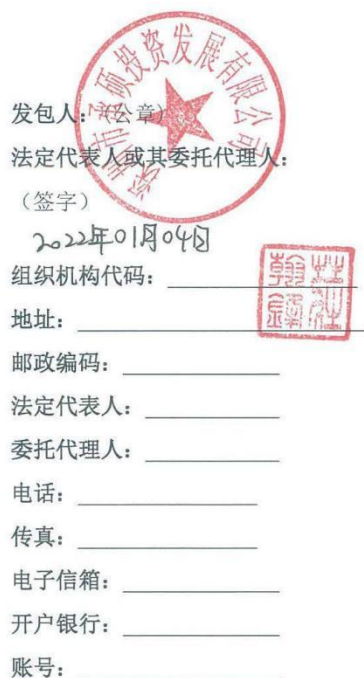 市硕投资发展有限公司
发包人：（公章）
法定代表人或其委托代理人：
（签字）
2022年01月04日
组织机构代码：
地址：
邮政编码：
法定代表人：
委托代理人：
电话：
传真：
电子信箱：
开户银行：
账号：